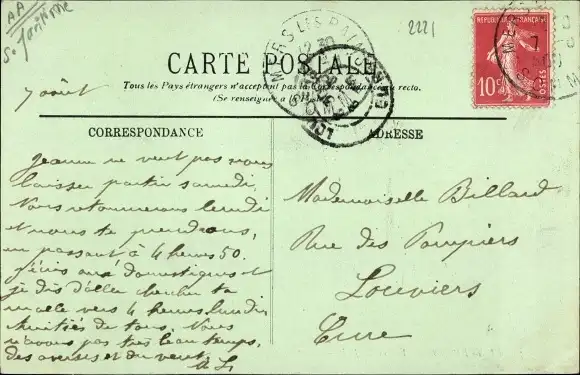 AA
2221
MERS LES BAINS
RÉPUBLIQUE FRANÇAISE
10c
POSTES
CARTE POSTALE
Tous les Pays étrangers n'acceptent pas la Correspondance au recto.
(Se renseigner à la Poste)
7 août
CORRESPONDANCE
ADRESSE
Jeanne ne veut pas nous
laisser partir samedi,
Nous retournerons lundi
et nous te prendrons,
en passant à 4 heures 50.
J'écris aux domestiques et
je dis d'aller chercher ta
malle vers 4 heures lundi
Amitiés de tous. Nous
n'avons pas très beau temps,
des averses et du vent.
A L
Mademoiselle Billard
Rue des Pompiers
Louviers
Eure